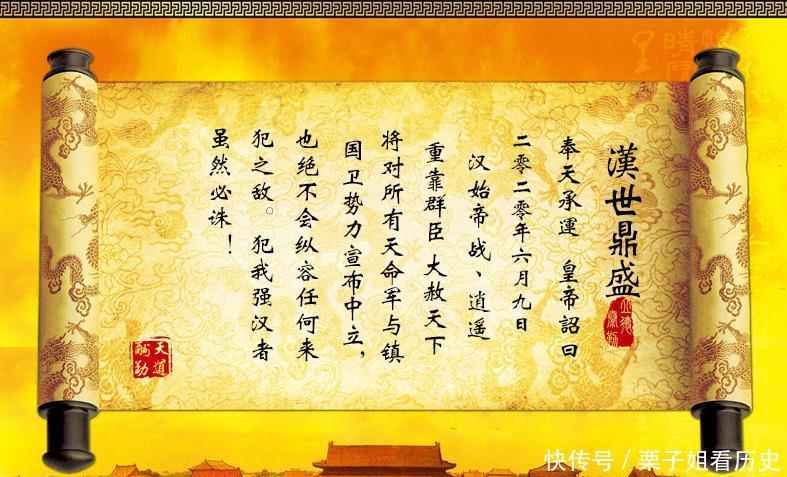 漢世鼎盛
奉天承運 皇帝詔曰
二零二零年六月九日
汉始帝战、逍遥
重靠群臣 大赦天下
将对所有天命军与镇
国卫势力宣布中立，
也绝不会纵容任何来
犯之敌。犯我强汉者
虽然必诛！
天道
酬勤
快传号 / 栗子姐看历史